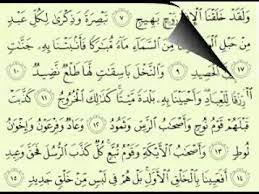 وَلَقَدْ خَلَقْنَا الْإِ زَوْجٍ بَهِيجٍ ٧ تَبْصِرَةً وَذِكْرَىٰ لِكُلِّ
مِنْ حَبْلِ مِنَ السَّمَاءِ مَاءً مُبَارَكًا فَأَنْبَتْنَا بِهِ
١٧ الْحَصِيدِ ٩ وَالنَّخْلَ بَاسِقَاتٍ لَهَا طَلْعٌ نَضِيدٌ ١٠
رِزْقًا لِلْعِبَادِ وَأَحْيَيْنَا بِهِ بَلْدَةً مَيْتًا كَذَٰلِكَ الْخُرُوجُ ١١ كَذَّبَتْ
قَبْلَهُمْ قَوْمُ نُوحٍ وَأَصْحَابُ الرَّسِّ وَثَمُودُ ١٢ وَعَادٌ وَفِرْعَوْنُ وَإِخْوَانُ
لُوطٍ ١٣ وَأَصْحَابُ الْأَيْكَةِ وَقَوْمُ تُبَّعٍ كُلٌّ كَذَّبَ الرُّسُلَ فَحَقَّ وَعِيدِ
١٤ أَفَعَيِينَا بِالْخَلْقِ الْأَوَّلِ بَلْ هُمْ فِي لَبْسٍ مِنْ خَلْقٍ جَدِيدٍ ١٥